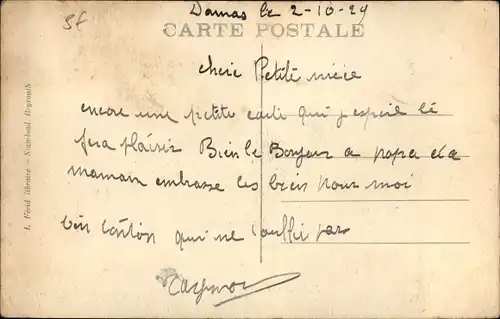 5f
Damas le 2-10-29
CARTE POSTALE
cheie Petite nièce
encore une petite carte qui j'espère te
fera plaisir Bien le Bonjour a papa et a
maman embrasse les bien pour moi
ton tonton qui ne t'oublie pas
I. Férid, libraire — Stamboul, Beyrouth